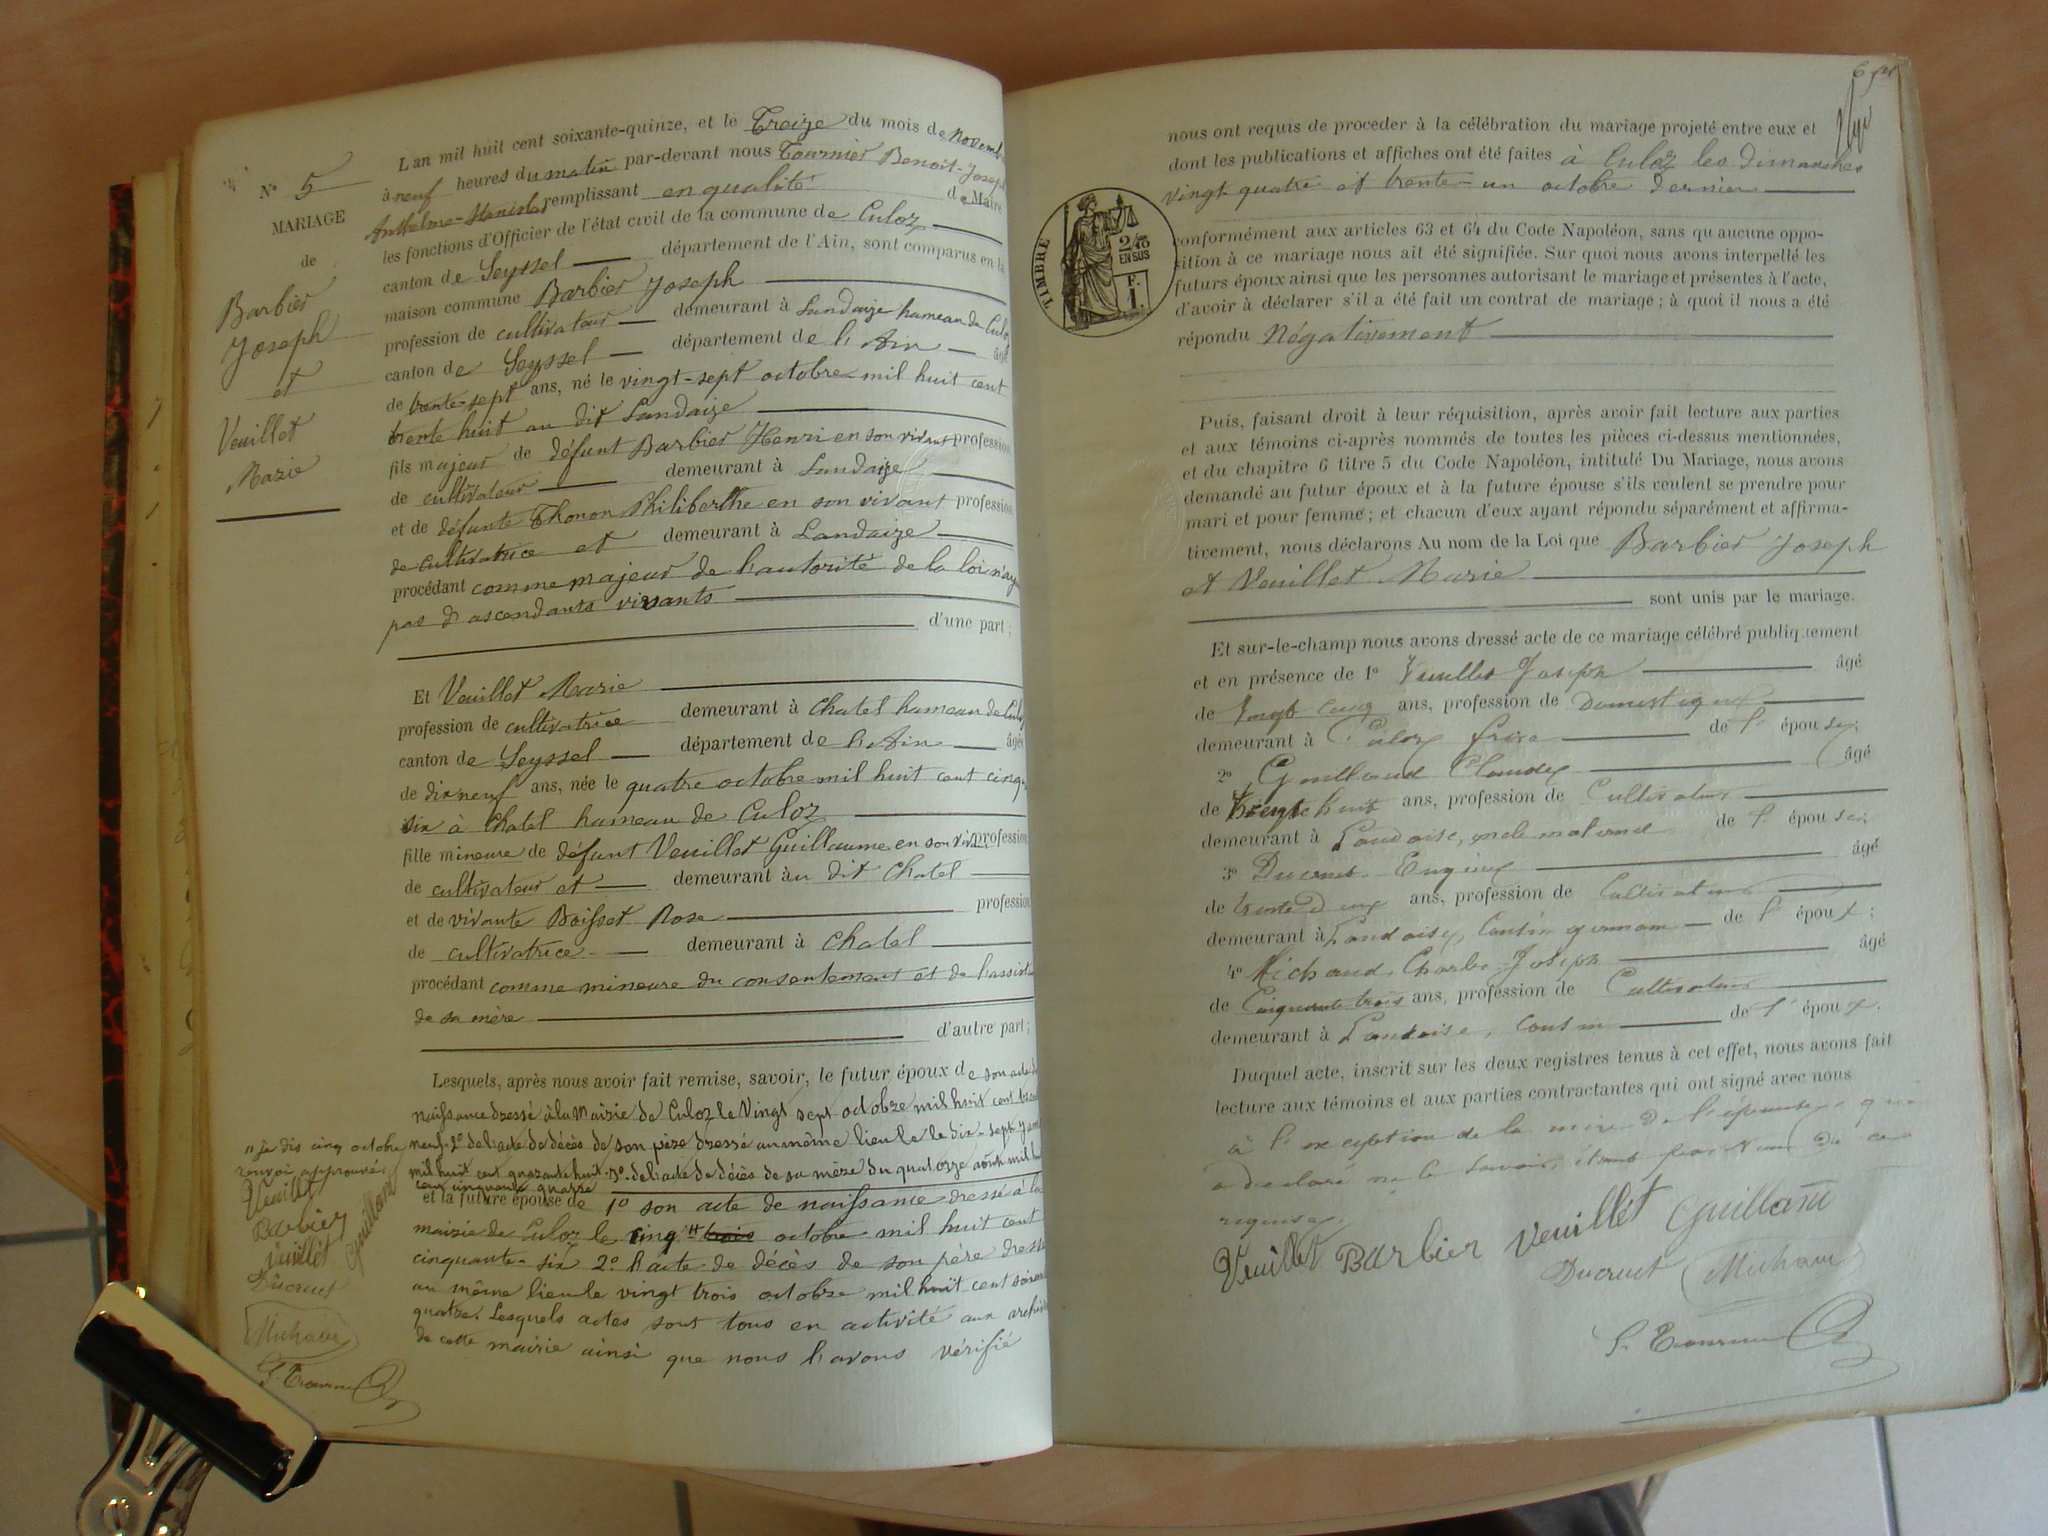 N° 5
MARIAGE
de
Barbier
Joseph
et
Veuillet
Marie
L'an mil huit cent soixante-quinze, et le Treize du mois de Novemb
à neuf heures du matin par-devant nous Tournier Benoit-Joseph
Anthelme-Stanislas remplissant en qualité de Maire
les fonctions d'Officier de l'état civil de la commune de Culoz
canton de Seyssel département de l'Ain, sont comparus en la
maison commune Barbier Joseph
profession de cultivateur demeurant à Landaize hameau de Culoz
canton de Seyssel département de l'Ain âgé
de trente-sept ans, né le vingt-sept octobre mil huit cent
trente huit au dit Landaize
fils majeur de défunt Barbier Henri en son vivant profession
de cultivateur demeurant à Landaize
et de défunte Thonon Philiberthe en son vivant profession
de cultivatrice et demeurant à Landaize
procédant comme majeur de l'autorité de la loi n'ay
pas d'ascendants vivants
d'une part ;
Et Veuillet Marie
profession de cultivatrice demeurant à Chatel hameau de Culoz
canton de Seyssel département de l'Ain âgée
de dix neuf ans, née le quatre octobre mil huit cent cinqu
six à Chatel hameau de Culoz
fille mineure de défunt Veuillet Guillaume en son viv. profession
de cultivateur et demeurant àu dit Chatel
et de vivante Boisset Rose profession
de cultivatrice demeurant à Chatel
procédant comme mineure du consentement et de l'assist
de sa mère
d'autre part ;
Lesquels, après nous avoir fait remise, savoir, le futur époux de son acte de
naissance dressé à la Mairie de Culoz le Vingt sept octobre mil huit cent trente
neuf. 2° de l'acte de décès de son père dressé au même lieu le dix-sept
mil huit cent quarante huit. 3° de l'acte de décès de sa mère du quatorze août mil hu
cent cinquante quatre
et la future épouse de 1° son acte de naissance dressé à la
mairie de Culoz le cinq " trois octobre mil huit cent
cinquante-six 2° l'acte de décès de son père dressé
au même lieu le vingt trois octobre mil huit cent soixan
quatre. Lesquels actes sont tous en activité aux archiv
de cette mairie ainsi que nous l'avons vérifié
" je dis cinq octobre
renvoi approuvé
Veuillet
Barbier
Veuillet
Guillam
Ducruet
Michaud
S. Tournier
6
nous ont requis de proceder à la célébration du mariage projeté entre eux et
dont les publications et affiches ont été faites à Culoz les dimanches
vingt quatre et trente-un octobre dernier
TIMBRE
2/10
EN SUS
F.
1.
conformément aux articles 63 et 64 du Code Napoléon, sans qu'aucune oppo-
sition à ce mariage nous ait été signifiée. Sur quoi nous avons interpellé les
futurs époux ainsi que les personnes autorisant le mariage et présentes à l'acte,
d'avoir à déclarer s'il a été fait un contrat de mariage ; à quoi il nous a été
répondu Négativement
Puis, faisant droit à leur réquisition, après avoir fait lecture aux parties
et aux témoins ci-après nommés de toutes les pièces ci-dessus mentionnées,
et du chapitre 6 titre 5 du Code Napoléon, intitulé Du Mariage, nous avons
demandé au futur époux et à la future épouse s'ils veulent se prendre pour
mari et pour femme ; et chacun d'eux ayant répondu séparément et affirma-
tivement, nous déclarons Au nom de la Loi que Barbier Joseph
et Veuillet Marie
sont unis par le mariage.
Et sur-le-champ nous avons dressé acte de ce mariage célébré publiquement
et en présence de 1° Veuillet Joseph âgé
de vingt cinq ans, profession de Domestique
demeurant à Culoz frère de l' épouse;
2° Guilland Claude âgé
de trente huit ans, profession de Cultivateur
demeurant à Landaise, oncle maternel de l' épouse;
3° Ducruet Eugène âgé
de trente deux ans, profession de Cultivateur
demeurant à Landaise, Cousin germain de l' époux ;
4° Michaud, Charles-Joseph âgé
de Cinquante trois ans, profession de Cultivateur
demeurant à Landaise, cousin de l' époux.
Duquel acte, inscrit sur les deux registres tenus à cet effet, nous avons fait
lecture aux témoins et aux parties contractantes qui ont signé avec nous
à l'exception de la mère de l'épouse qui
a déclaré ne le savoir, étant par Nous de ce
requise.
Veuillet Barbier Veuillet Guillam
Ducruet Michaud
S. Tournier